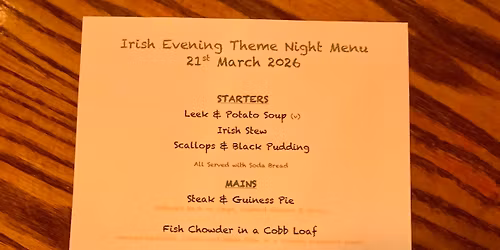 Irish Evening Theme Night Menu
21st March 2026
STARTERS
Leek & Potato Soup (v)
Irish Stew
Scallops & Black Pudding
All Served with Soda Bread
MAINS
Steak & Guiness Pie
Fish Chowder in a Cobb Loaf